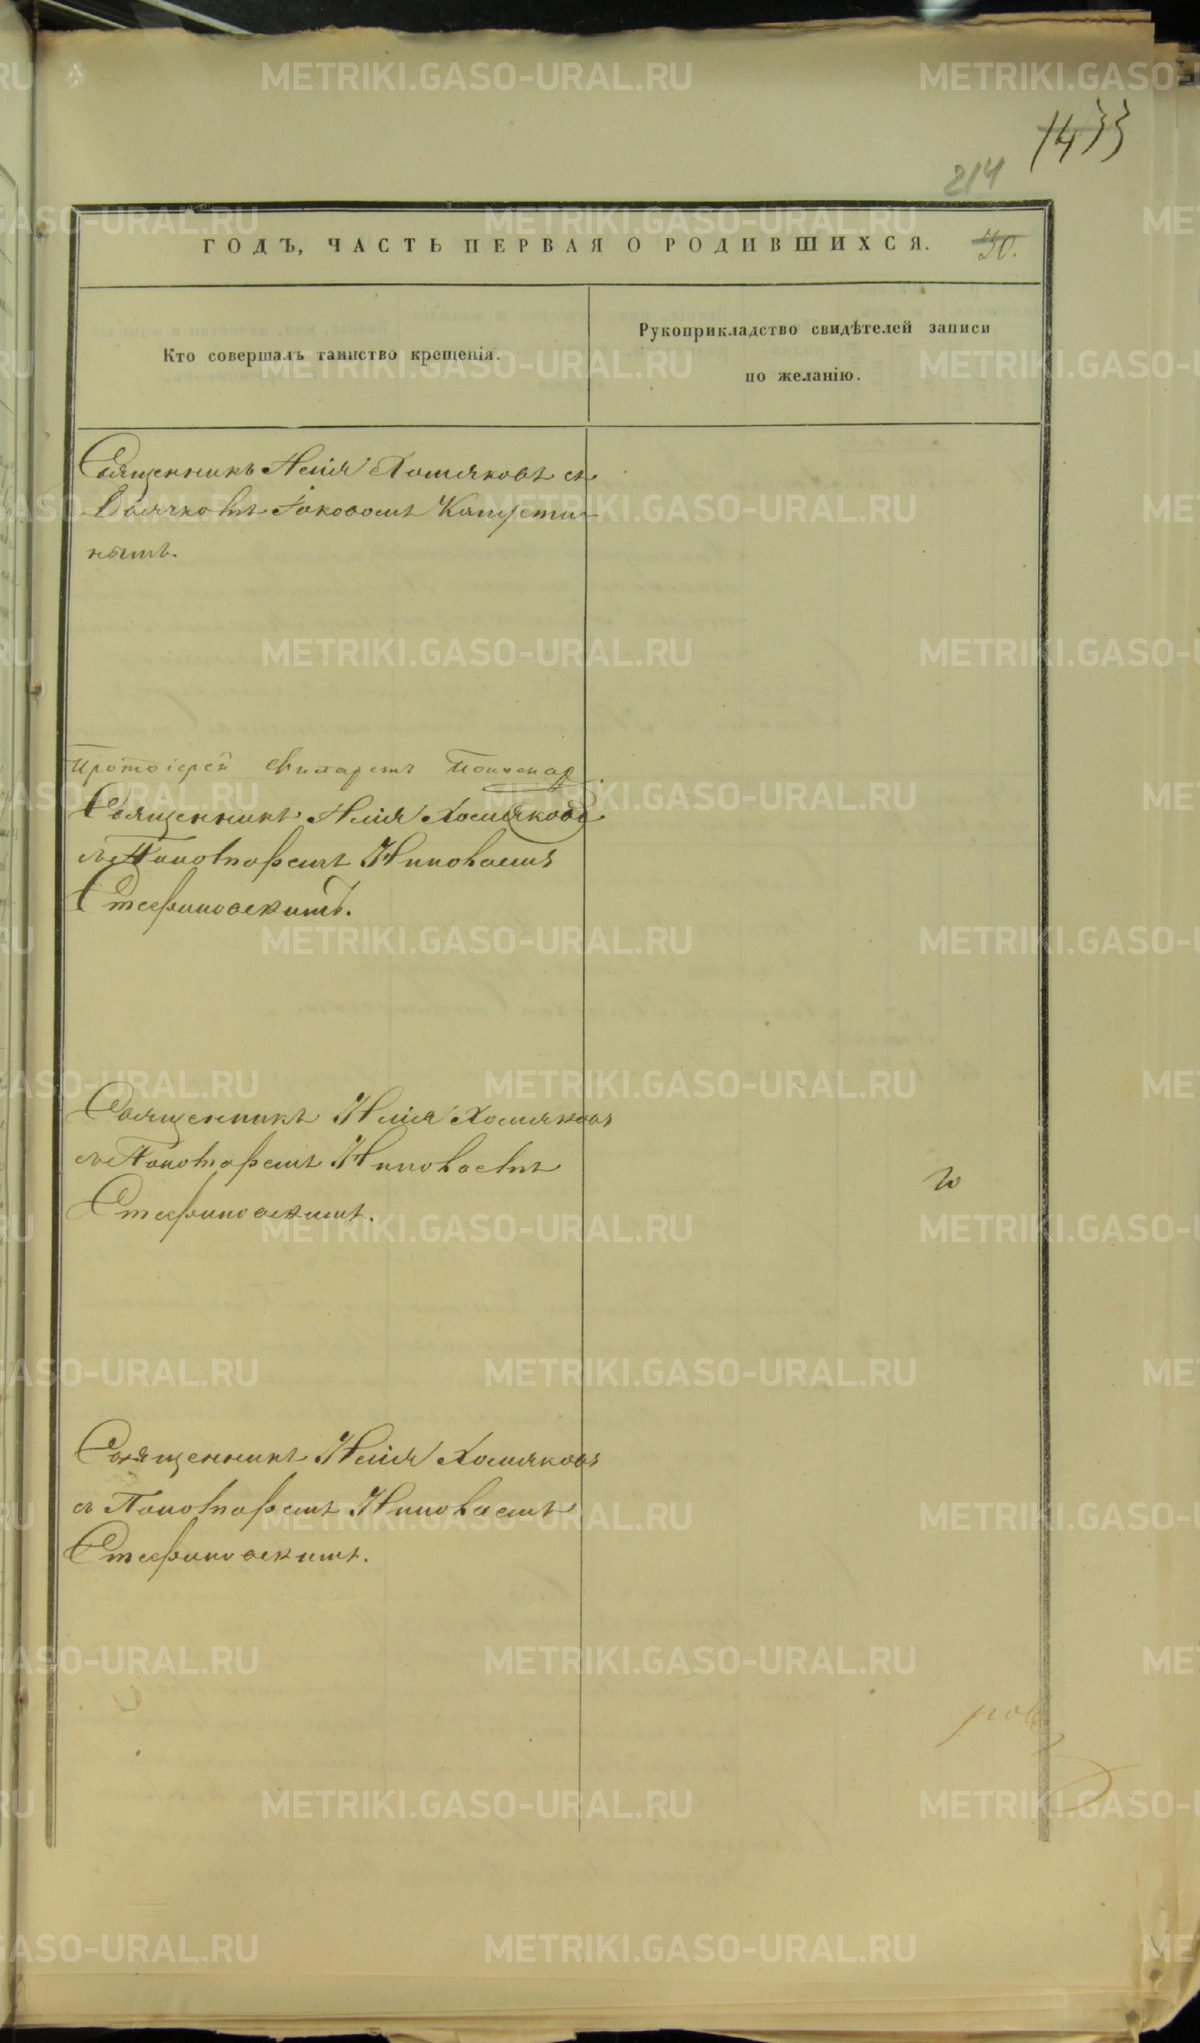 METRIKI.GASO-URAL.RU
214
ГОДЪ, ЧАСТЬ ПЕРВАЯ О РОДИВШИХСЯ. 30.
Кто совершалъ таинство крещенія.
Рукоприкладство свидѣтелей записи
по желанію.
Священникъ Илія Хомяковъ съ
Іаковомъ Капусти-
нымъ.
Протоіерей
Священникъ Илія Хомяковъ
съ Пономаремъ Николаемъ
Стефановскимъ.
Священникъ Илія Хомяковъ
съ Пономаремъ Николаемъ
Стефановскимъ.
Священникъ Илія Хомяковъ
съ Пономаремъ Николаемъ
Стефановскимъ.